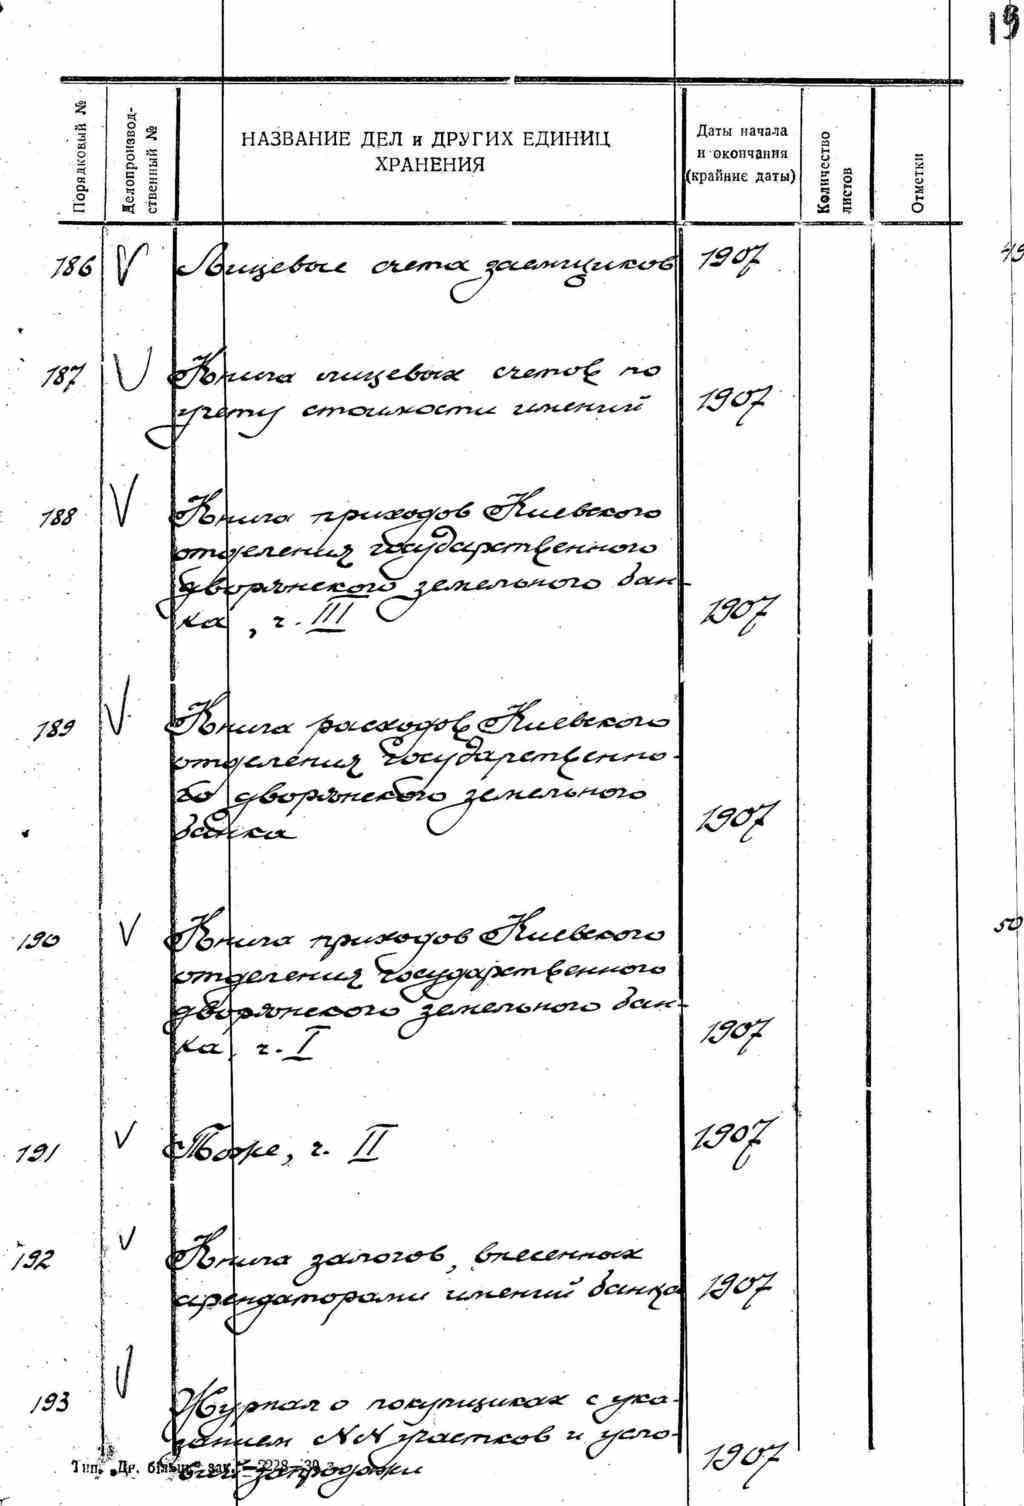 19
Порядковый №
Делопроизвод-
ственный №
НАЗВАНИЕ ДЕЛ и ДРУГИХ ЕДИНИЦ
ХРАНЕНИЯ
Даты начала
и окончания
(крайние даты)
Количество
листов
Отметки
186 V Лицевые счета заемщиков 1907
187 V Книга лицевых счетов по
учету стоимости имений 1907
188 V Книга приходов Киевского
отделения государственного
дворянского земельного бан-
ка, ч. III 1907
189 V Книга расходов Киевского
отделения Государственно-
го дворянского земельного
банка 1907
190 V Книга приходов Киевского
отделения государственного
дворянского земельного бан-
ка, ч. I 1907
50
191 V Тоже, ч. II 1907
192 V Книга залогов, внесенных
арендаторами имений банка 1907
193 V Журнал о покупщиках с ука-
занием NN участков и усло-
вий запродажи 1907
Тип. зак. 2228—39